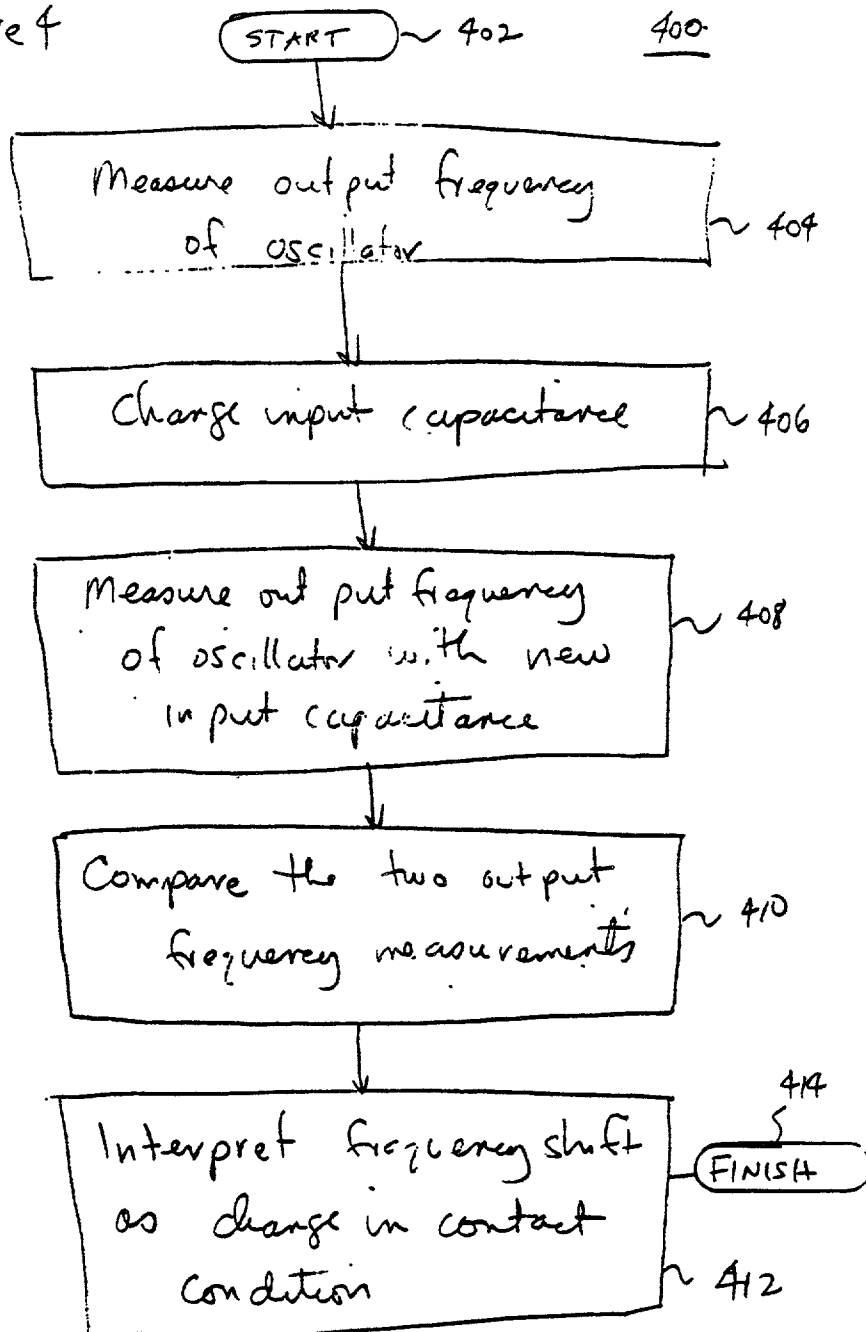 re 4
START 402 400
Measure output frequency
of oscillator
404
Change input capacitance 406
Measure out put frequency
of oscillator with new
input capacitance
408
Compare the two output
frequency measurements
410
Interpret frequency shift
as change in contact
condition
412
414
FINISH